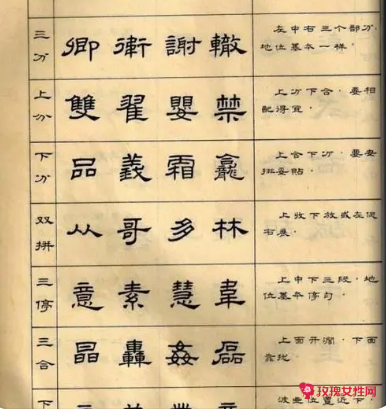 三分 卿 衛 謝 轍 左中右三个部分，
地位基本一样。
上分 雙 翟 嬰 禁 上分下合，要相
配得宜。
下分 品 義 霜 龕 上合下分，要安
排妥貼。
双拼 从 哥 多 林 上收下放或左促
右展。
三停 意 素 慧 韋 上中下三段，地
位基本停匀。
三合 晶 轟 姦 磊 上面开阔，下面
靠拢。
下 位置近下，
玫瑰女性网